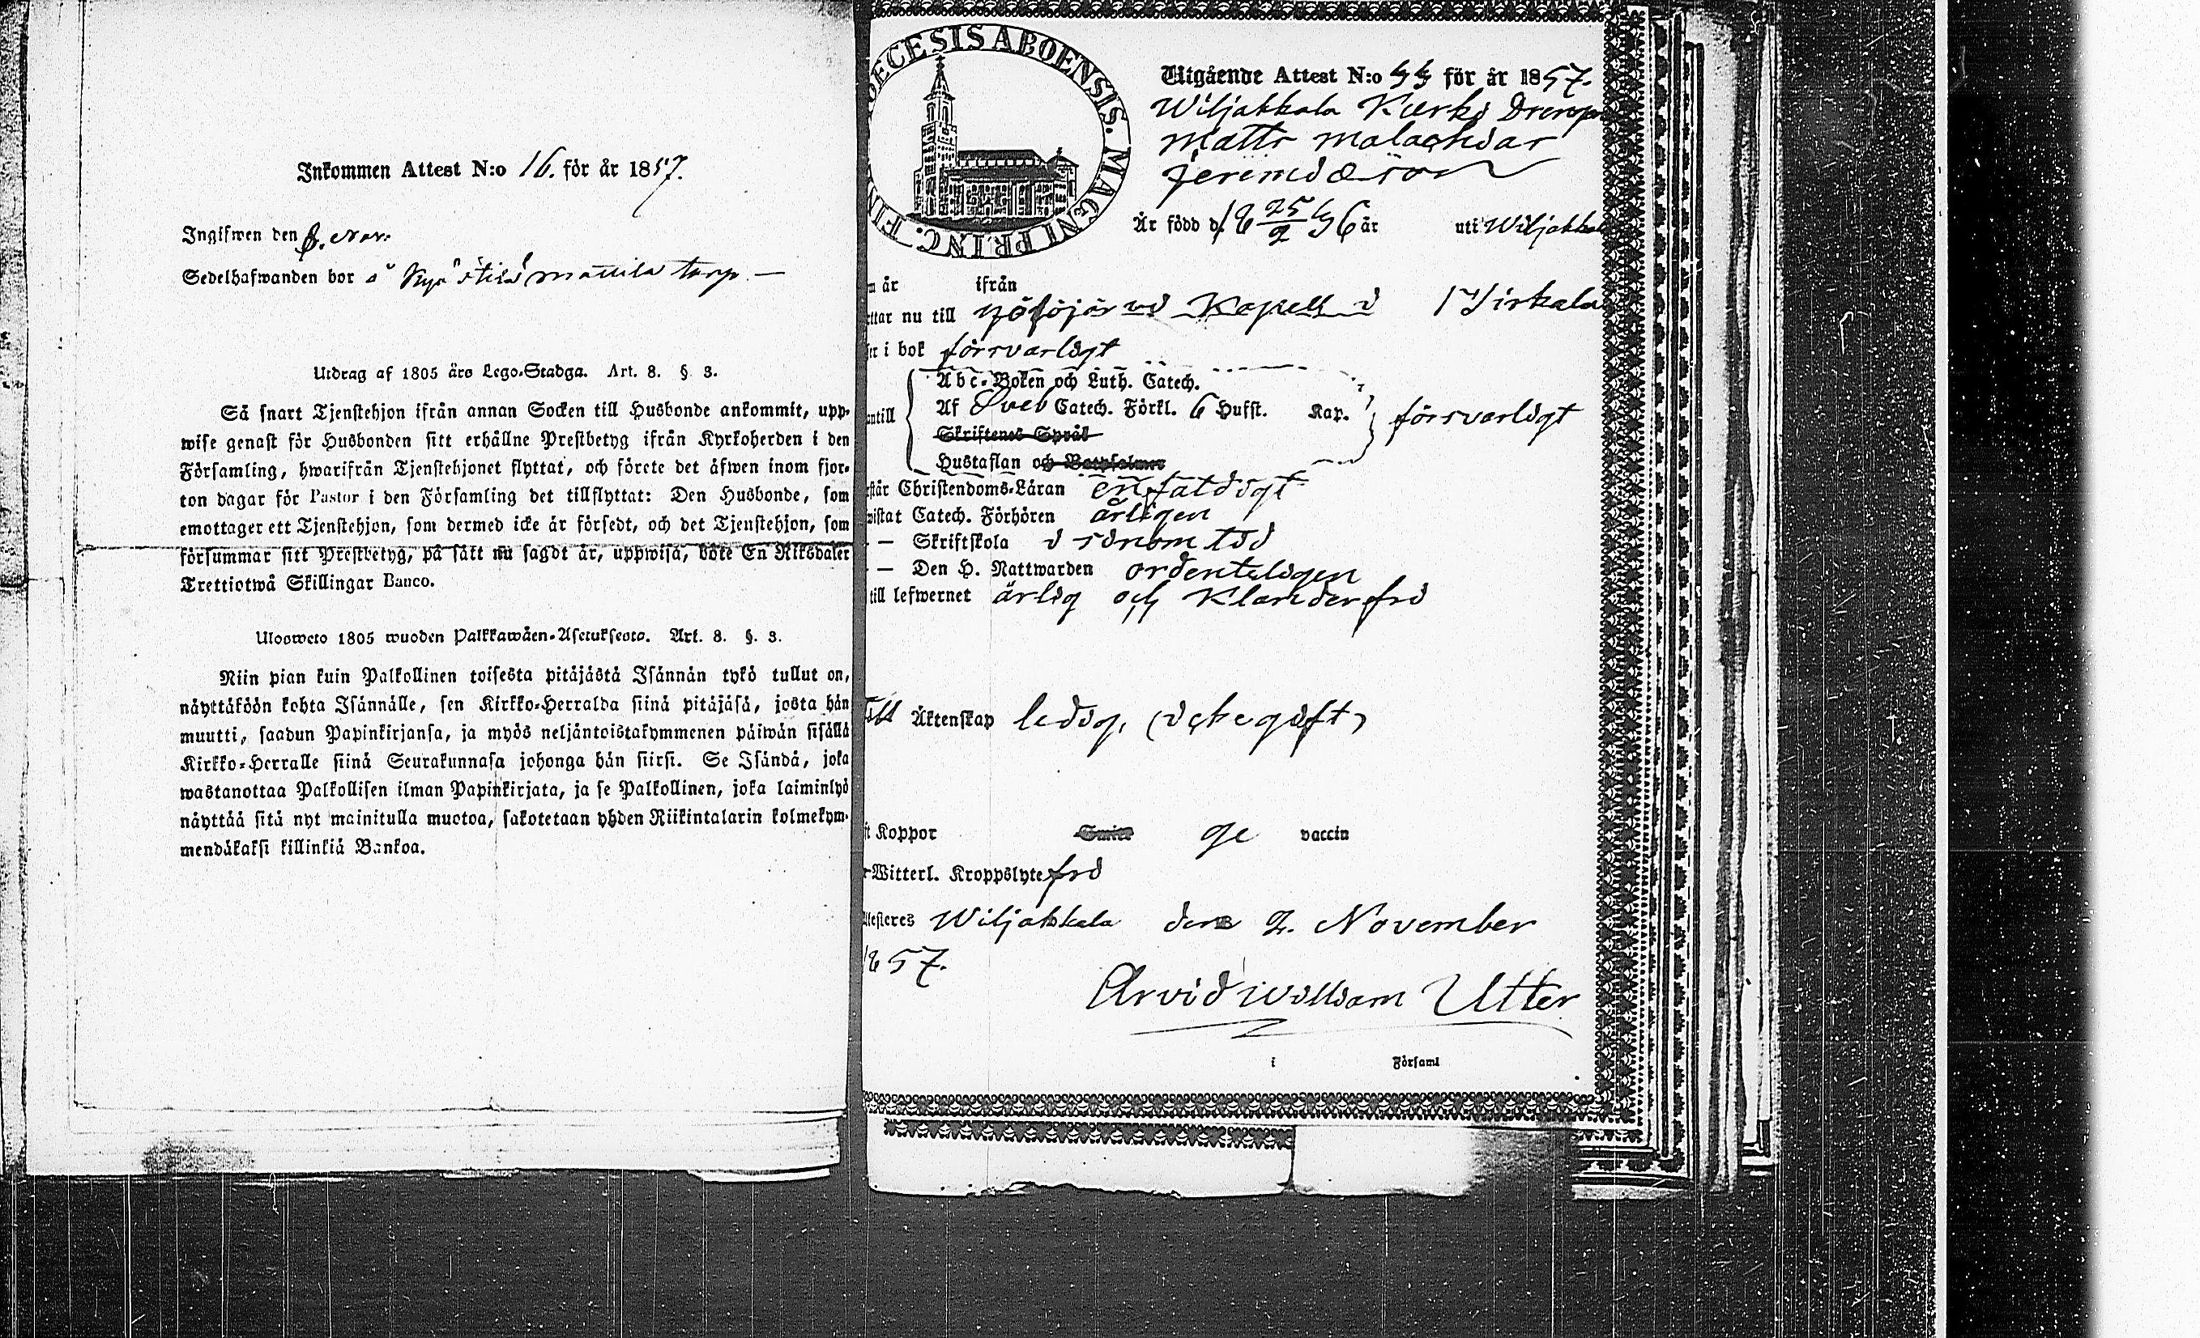 Inkommen Attest N:o 16. för år 1857.
Ingifwen den 8. Nov:
Sedelhafwanden bor å torp. —
Utdrag af 1805 års Lego-Stadga. Art. 8. § 3.
Så snart Tjenstehjon ifrån annan Socken till Husbonde ankommit, upp-
wise genast för Husbonden sitt erhållne Prestbetyg ifrån Kyrkoherden i den
Församling, hwarifrån Tjenstehjonet flyttat, och förete det äfwen inom fjor-
ton dagar för Pastor i den Församling det tillflyttat: Den Husbonde, som
emottager ett Tjenstehjon, som dermed icke är försedt, och det Tjenstehjon, som
försummar sitt Prestbetyg, på sätt nu sagdt är, uppwisa, böte En Riksdaler
Trettiotwå Skillingar Banco.
Ulosweto 1805 wuoden Palkkawäen-Asetuksesta. Art. 8. §. 3.
Niin pian kuin Palkollinen toisesta pitäjästä Isännän tykö tullut on,
näyttäköön kohta Isännälle, sen Kirkko-Herralda siinä pitäjäsä, josta hän
muutti, saadun Papinkirjansa, ja myös neljäntoistakymmenen päiwän sisällä
Kirkko-Herralle siinä Seurakunnasa johonga hän siirsi. Se Isändä, joka
wastanottaa Palkollisen ilman Papinkirjata, ja se Palkollinen, joka laiminlyö
näyttää sitä nyt mainitulla muotoa, sakotetaan yhden Riikintalarin kolmekym-
mendäkaksi killinkiä Bankoa.
DIECESIS ABOENSIS. MAGNI PRINC. FIN
Utgående Attest N:o 44 för år 1857.
Wiljakkala Kurki
Matts Malachias
Jeremiasson
Är född d. 18 25/2 36 år uti Wiljakkala
år ifrån
ttar nu till Ylöjärvi Kapell i Birkala
i bok försvarligt
Abc-Boken och Luth. Catech.
antill Af Sveb Catech. Förkl. 6 Hufst. Kap. försvarligt
Skriftenes Språk
Hustaflan och Botpsalmer
står Christendoms-Läran enfaldigt
wistat Catech. Förhören årligen
— Skriftskola i sinom tid
— Den H. Nattwarden ordenteligen
till lefwernet ärlig och klanderfri
Till Äktenskap ledig, (icke gift)
Koppor Smitt ge vaccin
Witterl. Kroppslyte fri
ttesteres Wiljakkala den 2. November
1857.
Arvid William Utter.
i Församl